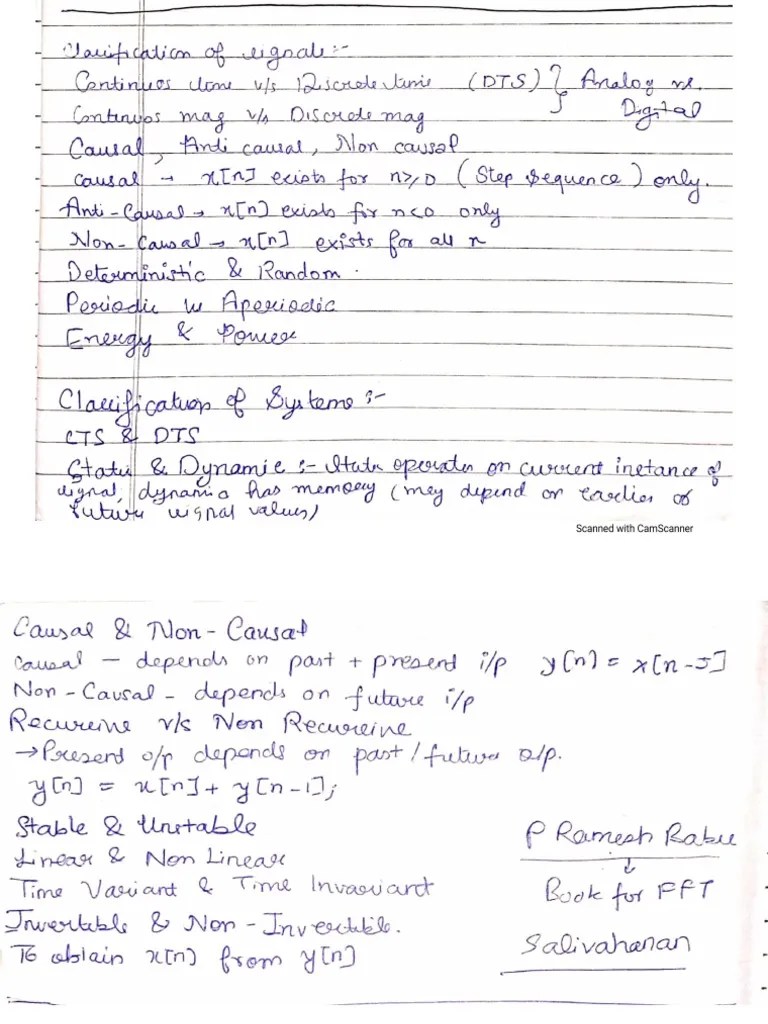 Classification of signals:-
Continuos time v/s Discrete time (DTS) } Analog vs.
Continuos mag v/s Discrete mag Digital
Causal, Anti causal, Non causal
causal → x[n] exists for n≥0 (Step Sequence) only.
Anti-Causal → x[n] exists for n<0 only
Non-Causal → x[n] exists for all n
Deterministic & Random.
Periodic vs Aperiodic
Energy & Power
Classification of Systems :-
CTS & DTS
Static & Dynamic :- Static operates on current instance of
signal, dynamic has memory (may depend on earlier or
future signal values)
Scanned with CamScanner
Causal & Non-Causal
Causal - depends on past + present i/p y[n] = x[n-5]
Non-Causal - depends on future i/p
Recursive v/s Non Recursive
→ Present o/p depends on past/future o/p.
y[n] = x[n] + y[n-1];
Stable & Unstable
Linear & Non Linear
Time Variant & Time Invariant
Invertible & Non-Invertible.
To obtain x[n] from y[n]
P Ramesh Babu
↓
Book for FFT
Salivahanan